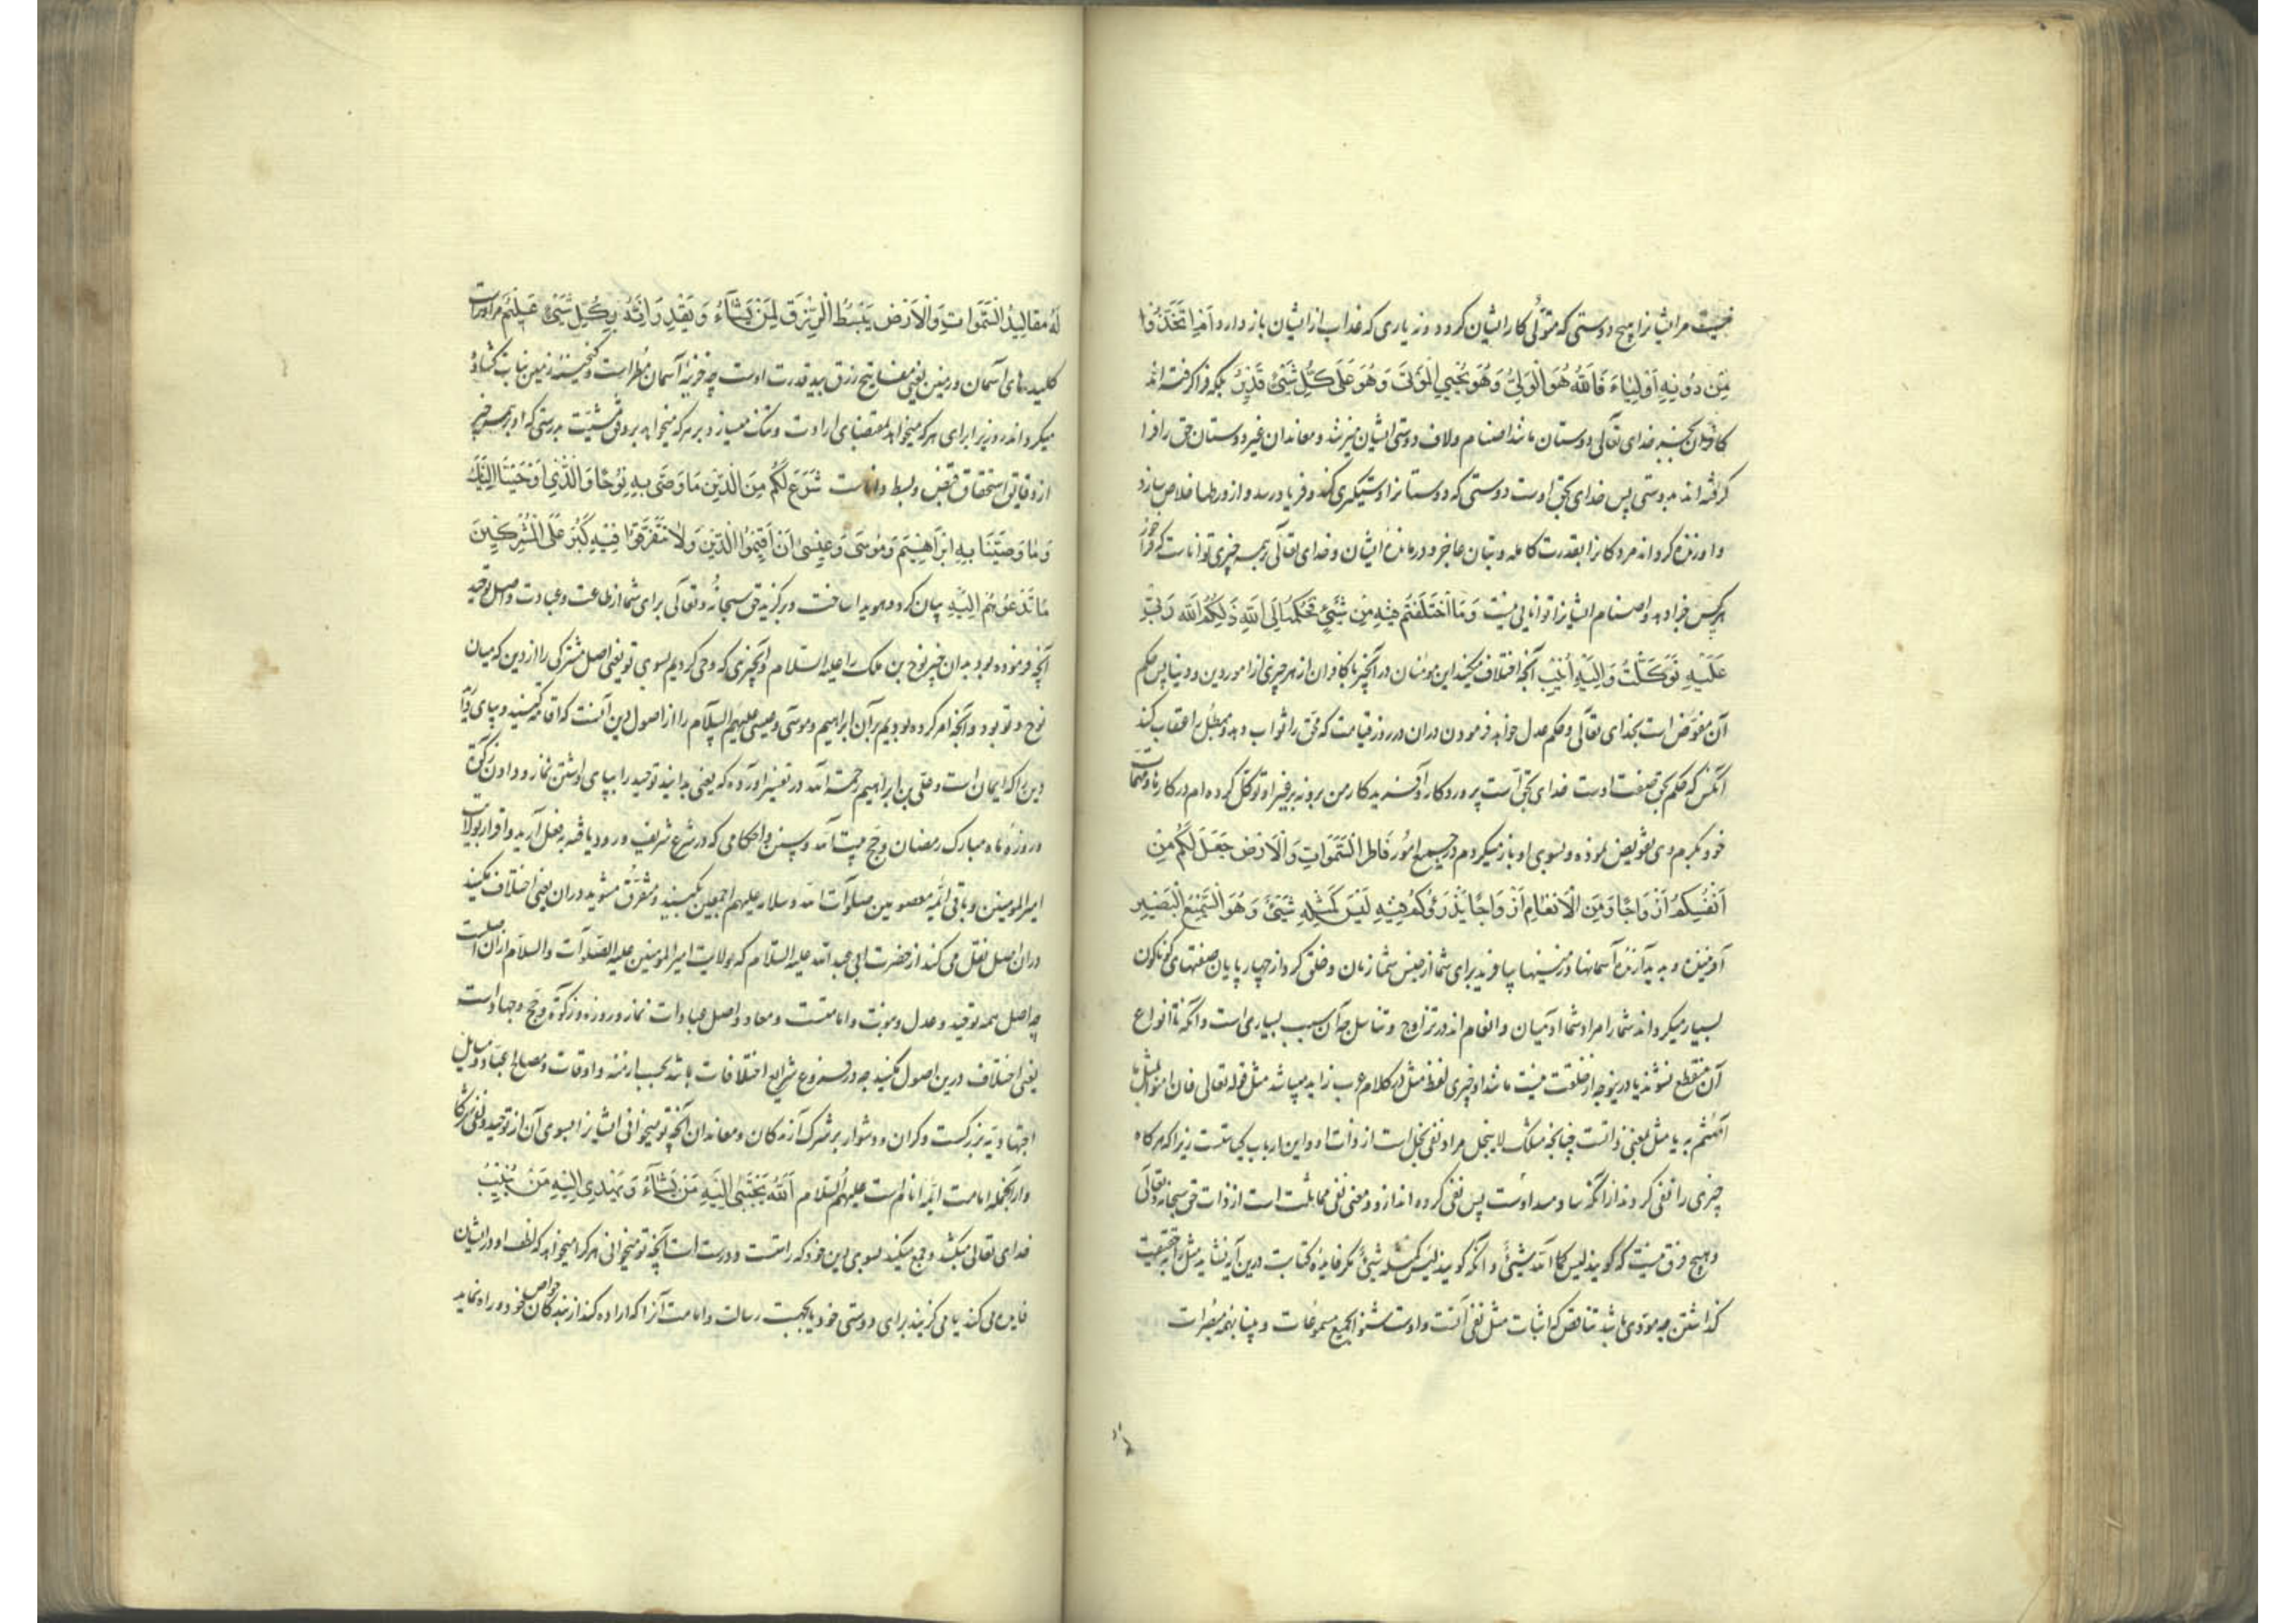 نیست مر ایشانرا هیچ دوستی که متولّی کار ایشان کردد و نه یاری که عذاب از ایشان باز دارد اَمِ اتَّخَذُوا
مِن دُونِهِ اَوْلِیاءَ فَاللّهُ هُوَ الْوَلِیُّ وَهُوَ یُحْیِی الْمَوْتَی وَهُوَ عَلَی کُلِّ شَیْئٍ قَدِیْرٌ بلکه فرا کرفته اند
کافران بجز خدای تعالی دوستان مانند اصنام ولاف دوستی ایشان میزنند و معاندان غیر دوستان حق را فرا
کرفته اند بدوستی پس خدای بحق اوست دوستی که دوستانرا دستیکری کند و فریاد رسد و از ورطها خلاص سازد
و او زنده کرداند مردکانرا بقدرت کامله و بتان عاجز و درمانده ایشان و خدای تعالی بر همه چیزی تواناست که
هر کس فرا دهد و اصنام ایشانرا توانایی نیست وَمَا اخْتَلَفْتُم فِیْهِ مِنْ شَیْئٍ فَحُکْمُهُ اِلَی اللّهِ ذَلِکُمُ اللّه رَبِّی
عَلَیْهِ تَوَکَّلْتُ وَاِلَیْهِ اُنِیْبُ آنچه اختلاف میکنید این مومنان در آنچیز با کافران از هر چیزی از امور دین و دنیا پس حکم
آن مفوّض است بخدای تعالی و حکم عدل خواهد فرمودن دران در روز قیامت که محق را ثواب دهد و مبطل را عقاب کند
آنکس که حکم بحق صفت اوست خدای بحق است پروردکار و آفریدکار من برو نه بر غیر او توکّل کرده ام در کارها و مهمات
خود بکرم وی تفویض نموده و بسوی او باز میکردم در جمیع امور فَاطِرُ السَّمَوَاتِ وَالْاَرْضِ جَعَلَ لَکُم مِنْ
اَنْفُسِکُمْ اَزْوَاجًا وَمِنَ الْاَنْعَامِ اَزْوَاجًا یَذْرَؤُکُمْ فِیْهِ لَیْسَ کَمِثْلِهِ شَیْئٌ وَهُوَ السَّمِیْعُ الْبَصِیْر
آفریننده و پدید آرنده آسمانها و زمینها بیافرید برای شما از جنس شما زنان و خلق کرد از چهار پایان صنفهای کوناکون
بسیار میکرداند شما را مراد شما آدمیان و انعام اند در تزاوج و تناسل چه آن سبب بسیاری است وانکه تا انواع
آن منقطع نشوند یا درینوجه از خلقت نیست مانند او چیزی لفظ مثل در کلام عرب زاید میباشد مثل قوله تعالی فان امنوا بمثل ما
آمنتم به یا مثل بمعنی ذاتست چنانچه مثلک لا یبخل مراد نفی بخل است از ذات او و این از باب کنایتست زیرا که هر کاه
چیزی را نفی کردند از آنکه ساد مسد اوست پس نفی کرده اند از و و معنی نفی مماثلت است از ذات حق سبحانه و تعالی
و هیچ فرق نیست که کویند لیس کاللّه شیئٌ و آنکه کویند لیس کمثله شیئ مکر فایده کنایت درین آیه نشاید مثل را بحقیقت
کذاشتن چه مودّی باشد تناقض که اثبات مثل نفی آنست و اوست شنوا بجمیع مسموعات و بینا بهمه مبصرات
لَهُ مقالِیدُ السَّمَوَاتِ وَالْاَرْضِ یَبْسُطُ الرِّزْقَ لِمَنْ یَشَآءُ وَیَقْدِرُ اِنَّهُ بِکُلِّ شَیْئٍ عَلِیْمٌ مر اوراست
کلیدهای آسمان و زمین یعنی مفاتیح رزق بید قدرت اوست چه خزینه آسمان مطر است و کنجینه زمین نبات کشاده
میکرداند روزیرا برای هر که میخواهد بمقتضای ارادت و تنک میسازد بر هر که میخواهد بر وفق مشیّت بدرستی که او بهمه چیز
از دقایق استحقاق قبض و بسط داناست شَرَعَ لَکُمْ مِنَ الدِّیْنِ مَا وَصَّی بِهِ نُوْحًا وَالَّذِی اَوْحَیْنَا اِلَیْكَ
وَمَا وَصَّیْنَا بِهِ اِبْرَاهِیْمَ وَمُوسَی وَعِیْسَی اَنْ اَقِیْمُوا الدِّیْنَ وَلَا تَتَفَرَّقُوا فِیْهِ کَبُرَ عَلَی الْمُشْرِکِیْنَ
مَا تَدْعُوْهُمْ اِلَیْهِ بیان کرد و هویدا ساخت و برکزید حق سبحانه و تعالی برای شما از طاعت و عبادت و اصل توحید
آنچه فرموده بود بدان چیز نوح بن ملک را علیه السّلام و آنچیزی که وحی کردیم بسوی تو یعنی اصل مشترکی را از دین که میان
نوح و تو بود و آنچه امر کرده بودیم بر آن ابراهیم و موسی و عیسی علیهم السّلام را از اصول دین آنست که اقامه کنید و بپای دارید
دین را که ایمان است و علی بن ابراهیم رحمة اللّه در تفسیر آورده که یعنی بدانید توحید را بپای داشتن نماز و دادن زکوة
و روزه ماه مبارک رمضان و حج بیت اللّه و سنن و احکامی که در شرع شریف ورود یافته بفعل آرید و اقرار بولایت
امیر المومنین و باقی ائمه معصومین صلوات اللّه و سلامه علیهم اجمعین بکنید و متفرّق مشوید دران یعنی اختلاف مکنید
دران اصل نقل می کند از حضرت ابی عبد اللّه علیه السّلام که بولایت امیر المومنین علیه الصّلوات والسّلام از ان اصلست
چه اصل همه توحید و عدل و نبوت و امامتست و معاد و اصل عبادات نماز و روزه و زکوة و حج و جهاد است
یعنی اختلاف درین اصول مکنید چه در فروع شرایع اختلافات باشد بحسب ازمنه و اوقات و مصالح عباد و مسایل
اجتهادیّه بزرکست و کران و دشوار بر شرک آرندکان و معاندان آنچه تو میخوانی ایشانرا بسوی آن از توحید و نفی شرکا
و از آنجمله امامت ائمّه انام است علیهم السّلام اَللّهُ یَجْتَبِی اِلَیْهِ مَنْ یَشَآءُ وَیَهْدِی اِلَیْهِ مَنْ یُنِیْبُ
خدای تعالی میکشد و جمع میکند بسوی دین خود که راست و درست است آنچه تو میخوانی هر کرا میخواهد که لطف او در ایشان
فایده می کند یا می کزیند برای دوستی خود یا بجهت رسالت و امامت آنرا که اراده کند از بندکان خواص خود و راه نماید